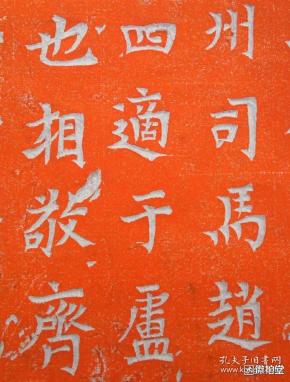 州司馬趙
四適于盧
也相敬齊
孔夫子旧书网